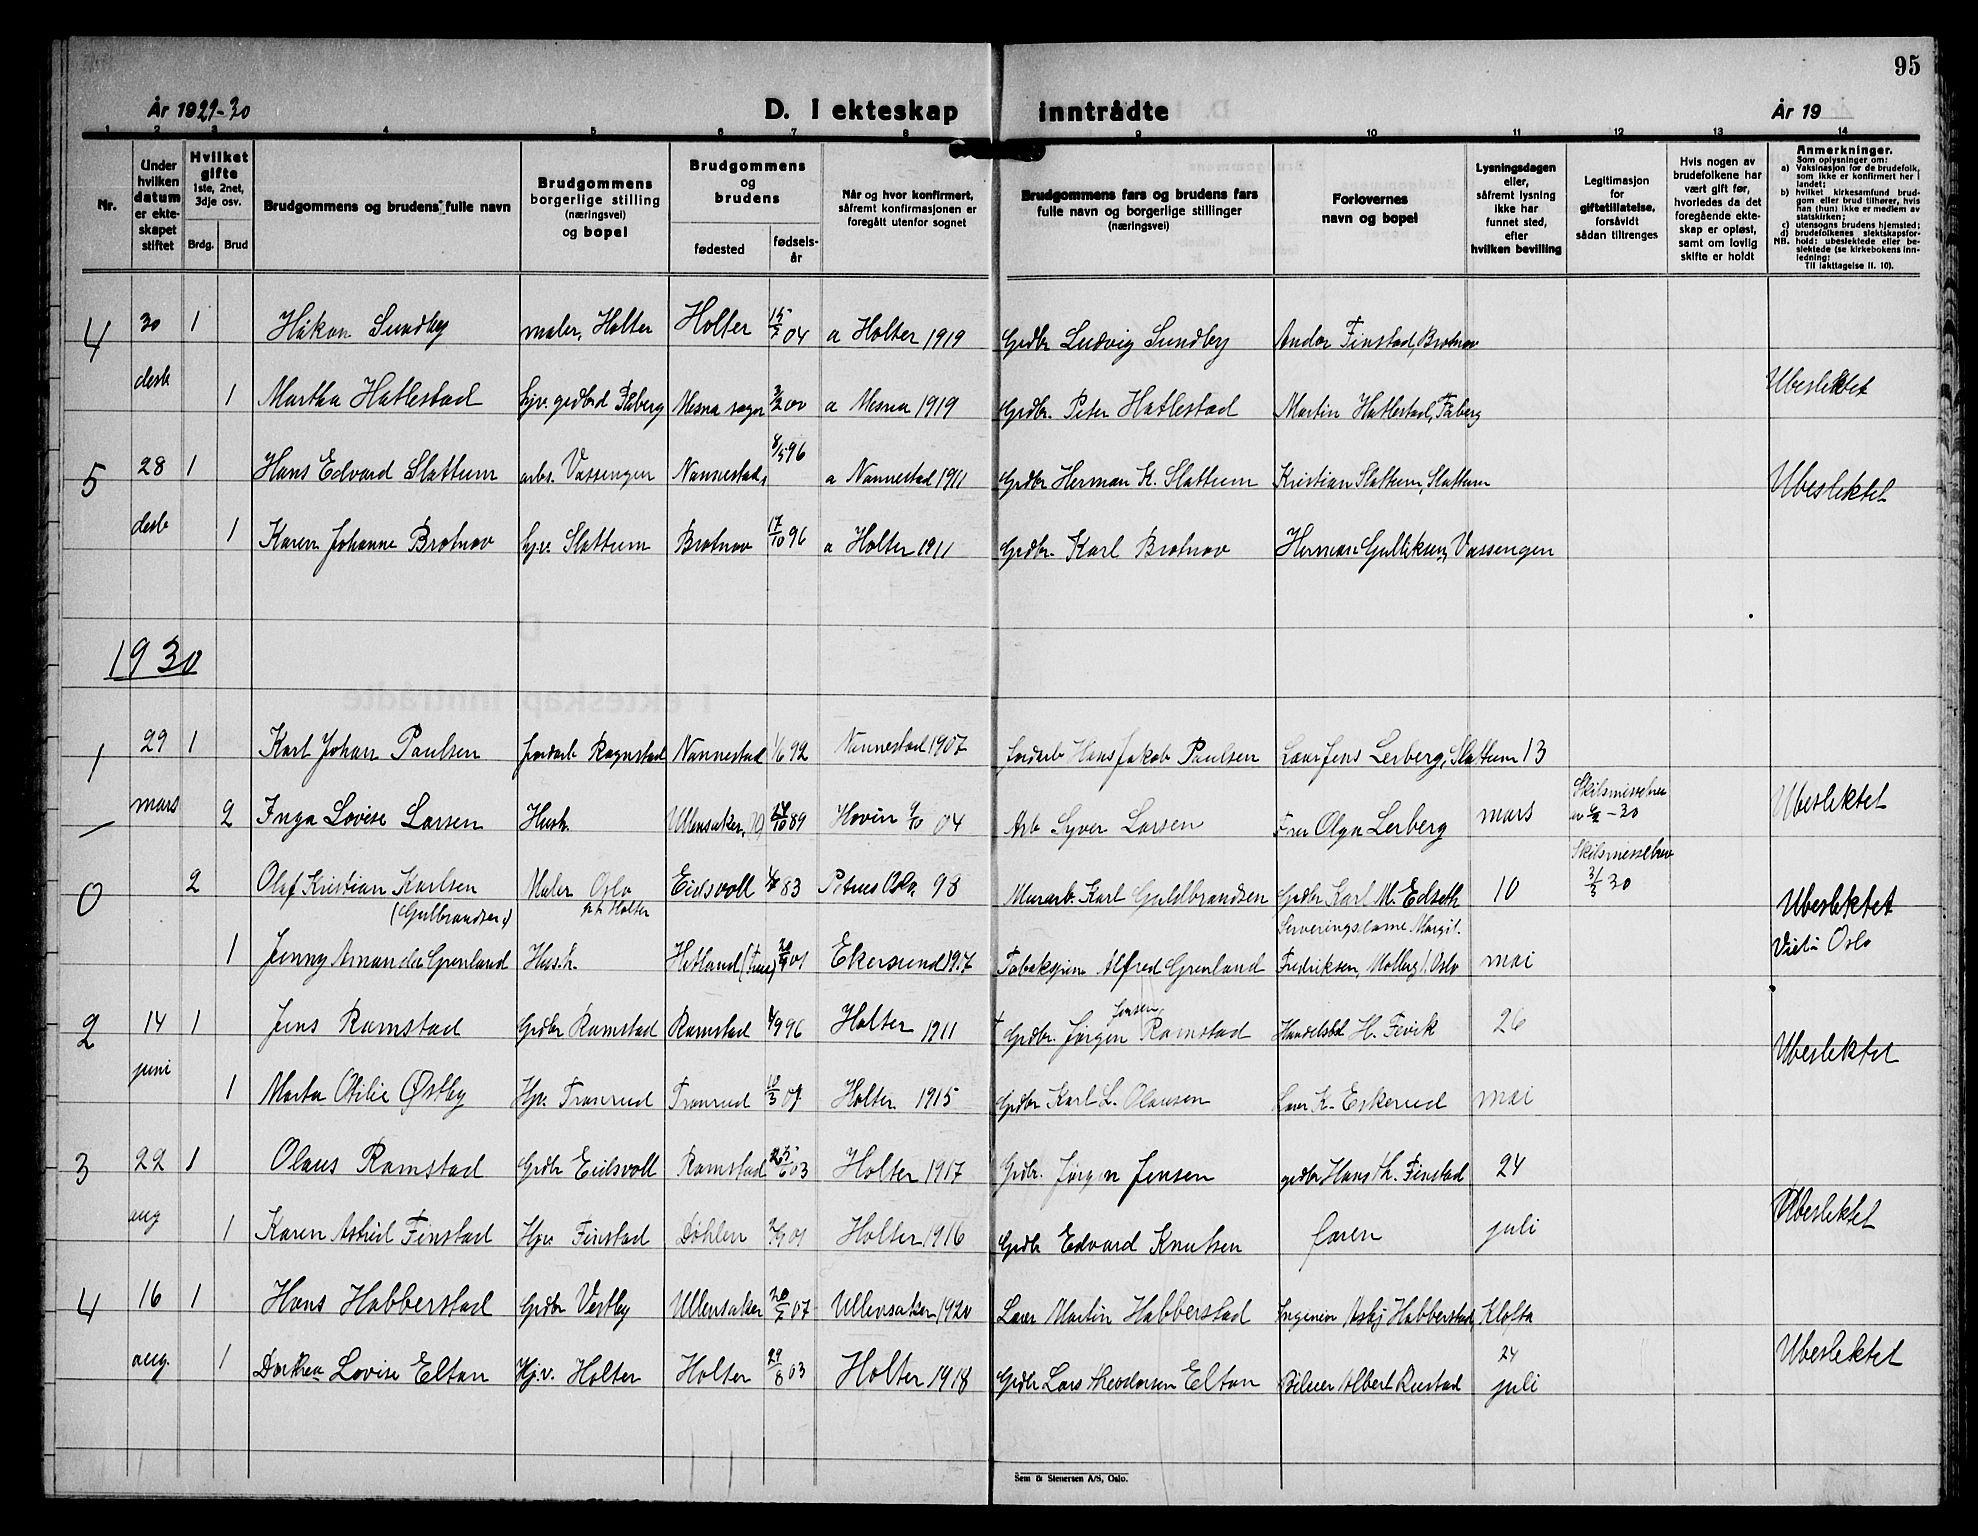 95
År 1929-30 D. I ekteskap inntrådte År 19
1 2 3 4 5 6 7 8 9 10 11 12 13 14
Nr.
Under hvilken datum er ekteskapet stiftet
Hvilket gifte 1ste, 2net, 3dje osv.
Brdg. Brud
Brudgommens og brudens fulle navn
Brudgommens borgerlige stilling (næringsvei) og bopel
Brudgommens og brudens
fødested fødselsår
Når og hvor konfirmert, såfremt konfirmasjonen er foregått utenfor sognet
Brudgommens fars og brudens fars fulle navn og borgerlige stillinger (næringsvei)
Forlovernes navn og bopel
Lysningsdagen eller, såfremt lysning ikke har funnet sted, efter hvilken bevilling
Legitimasjon for giftetillatelse, forsåvidt sådan tiltrenges
Hvis nogen av brudefolkene har vært gift før, hvorledes da det foregående ekteskap er opløst, samt om lovlig skifte er holdt
Anmerkninger.
Som oplysninger om:
a) Vaksinasjon for de brudefolk, som ikke er konfirmert her i landet;
b) hvilket kirkesamfund brudgom eller brud tilhører, hvis han (hun) ikke er medlem av statskirken;
c) utensogns brudens hjemsted;
d) brudefolkenes slektskapsforhold: ubeslektede eller beslektede (se kirkebokens innledning:
NB. Til iakttagelse II. 10).
4 30 1 Håkon Sundby maler, Holter Holter 15/7 04 a Holter 1919 Grdbr Ludvig Sundby Andor Finstad, Brotnov
desb 1 Martha Hatlestad hjv. Fåberg Mesna sogn 3/2 00 a Mesna 1919 Grdbr. Peter Hatlestad Martin Hatlestad, Fåberg Ubeslektet
5 28 1 Hans Edvard Slattum arb. Vassengen Nannestad 8/5 96 a Nannestad 1911 Grdbr Herman K. Slattum Kristian Slattum, Slattum Ubeslektet
desb 1 Karen Johanne Brotnov hjv. Slattum Brotnov 17/10 96 a Holter 1911 Grdbr. Karl Brotnov Herman Gulliksen, Vassengen
1930
1 29 1 Karl Johan Paulsen jordarb Ragnstad Nannestad 1/6 92 Nannestad 1907 jordarb Hans Jakob Paulsen Jens Lerberg, Slattum 13
mars 2 Inga Lovise Larsen Hush. Ullensaker 89 Hovin 04 Arb Syver Larsen Fru Olga Lerberg mars Ubeslektet
0 2 Olaf Kristian Karlsen Maler Oslo Eidsvoll 83 Petrus Oslo. 98 Murarb. Karl Guldbrandsen Grdbr Karl M. Edseth 10 Skilsmissebrev 3/3 30 Ubeslektet
(Gulbrandsen) p.t. Holter Serveringsdame Margit
1 Jenny Amanda Grenland Hush. Hetland 20/9 01 Ekersund 1917 Alfred Grenland Fredriksen, Oslo mai Viet i Oslo
Jensen
2 14 1 Jens Ramstad Grdbr Ramstad Ramstad 96 Holter 1911 † Grdbr. Jørgen Ramstad Handelsbd H. Fevik 26
juni 1 Marta Otilie Østby Hjv. Tranrud Tranrud Holter 1915 Grdbr Karl L. Olausen K. Eskerud mai Ubeslektet
3 22 1 Olaus Ramstad Grdbr Eidsvoll Ramstad 03 Holter 1917 Grdbr. Jørgen Jensen grdbr Hans Th. Finstad 24
aug 1 Karen Astrid Finstad Hjv Finstad Døhlen 01 Holter 1916 Grdbr Edvard Knutsen faren juli Ubeslektet
4 16 1 Hans Habberstad Grdbr Vestby Ullensaker 07 Ullensaker 1920 Lærer Martin Habberstad Ingeniør Habberstad, Kløfta
aug. 1 Dorthea Lovise Eltan Hj.v. Holter Holter 29/8 03 Holter 1918 Grdbr Lars Theodorsen Eltan Bileier Albert Rustad 24 juli Ubeslektet
Sem & Stenersen A/S, Oslo.